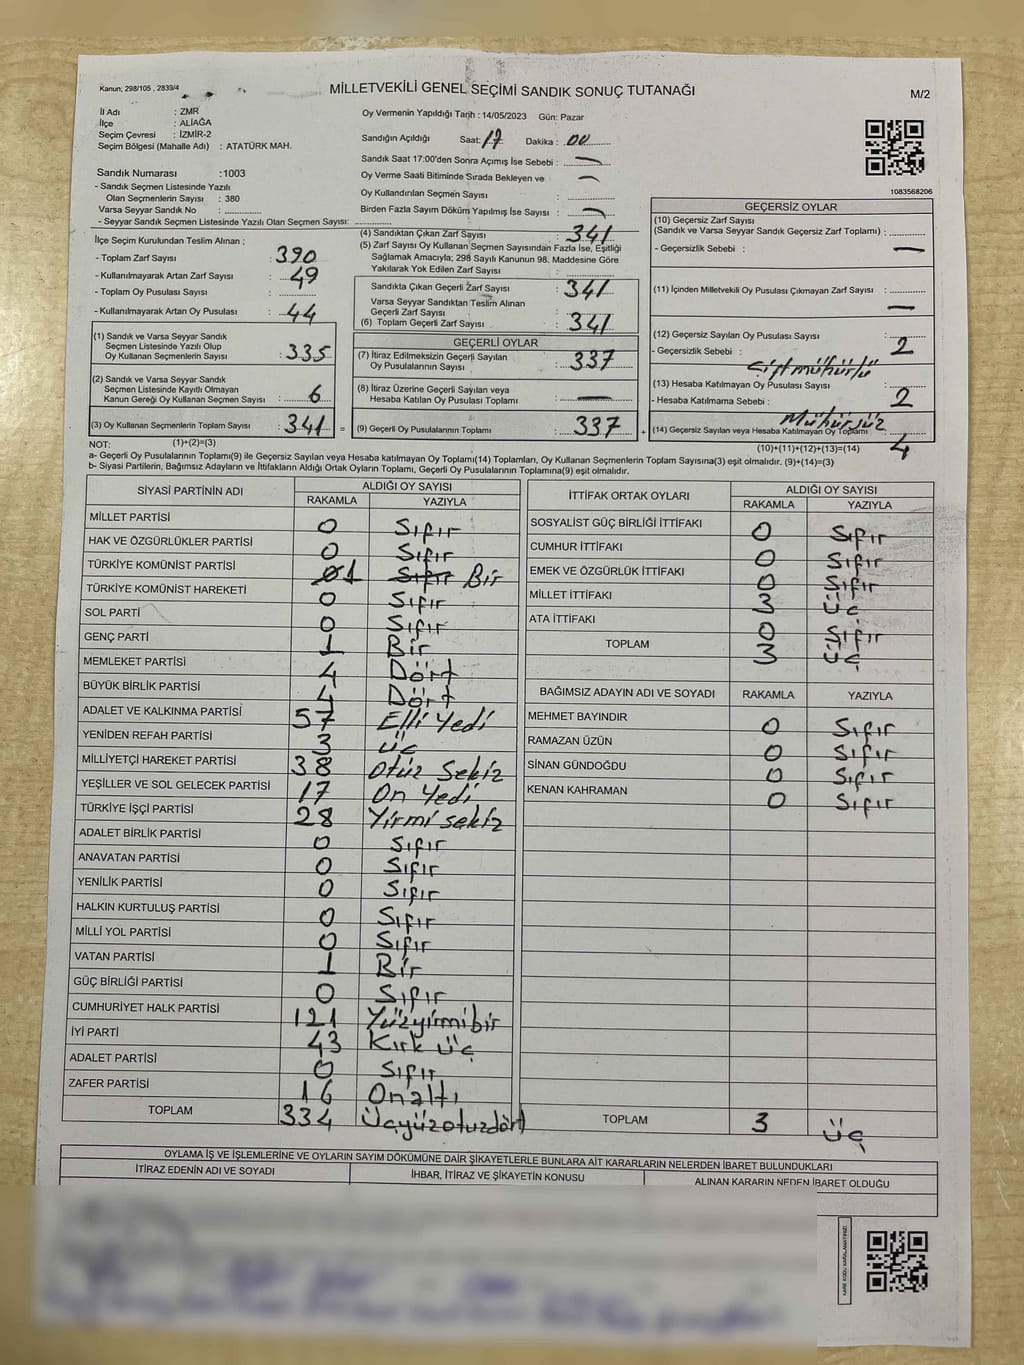 Kanun; 298/105 , 2839/4
MİLLETVEKİLİ GENEL SEÇİMİ SANDIK SONUÇ TUTANAĞI
M/2
İl Adı : ZMR
İlçe : ALİAĞA
Seçim Çevresi : İZMİR-2
Seçim Bölgesi (Mahalle Adı) : ATATÜRK MAH.
Sandık Numarası :1003
- Sandık Seçmen Listesinde Yazılı
Olan Seçmenlerin Sayısı : 380
Varsa Seyyar Sandık No : ..............
- Seyyar Sandık Seçmen Listesinde Yazılı Olan Seçmen Sayısı: ..............
Oy Vermenin Yapıldığı Tarih : 14/05/2023 Gün: Pazar
Sandığın Açıldığı Saat: 17 Dakika : 00
Sandık Saat 17:00'den Sonra Açımış İse Sebebi : —
Oy Verme Saati Bitiminde Sırada Bekleyen ve —
Oy Kullandırılan Seçmen Sayısı :
Birden Fazla Sayım Döküm Yapılmış İse Sayısı : —
1083568206
İlçe Seçim Kurulundan Teslim Alınan ;
- Toplam Zarf Sayısı : 390
- Kullanılmayarak Artan Zarf Sayısı : 49
- Toplam Oy Pusulası Sayısı : ..............
- Kullanılmayarak Artan Oy Pusulası : 44
(1) Sandık ve Varsa Seyyar Sandık
Seçmen Listesinde Yazılı Olup
Oy Kullanan Seçmenlerin Sayısı : 335
(2) Sandık ve Varsa Seyyar Sandık
Seçmen Listesinde Kayıtlı Olmayan
Kanun Gereği Oy Kullanan Seçmen Sayısı : 6
(3) Oy Kullanan Seçmenlerin Toplam Sayısı : 341 =
(4) Sandıktan Çıkan Zarf Sayısı : 341
(5) Zarf Sayısı Oy Kullanan Seçmen Sayısından Fazla İse, Eşitliği
Sağlamak Amacıyla; 298 Sayılı Kanunun 98. Maddesine Göre
Yakılarak Yok Edilen Zarf Sayısı :
Sandıkta Çıkan Geçerli Zarf Sayısı : 341
Varsa Seyyar Sandıktan Teslim Alınan
Geçerli Zarf Sayısı :
(6) Toplam Geçerli Zarf Sayısı : 341
GEÇERLİ OYLAR
(7) İtiraz Edilmeksizin Geçerli Sayılan
Oy Pusulalarının Sayısı : 337
(8) İtiraz Üzerine Geçerli Sayılan veya
Hesaba Katılan Oy Pusulası Toplamı : —
(9) Geçerli Oy Pusulalarının Toplamı : 337 +
GEÇERSİZ OYLAR
(10) Geçersiz Zarf Sayısı
(Sandık ve Varsa Seyyar Sandık Geçersiz Zarf Toplamı) :
- Geçersizlik Sebebi : —
(11) İçinden Milletvekili Oy Pusulası Çıkmayan Zarf Sayısı :
—
(12) Geçersiz Sayılan Oy Pusulası Sayısı : 2
- Geçersizlik Sebebi : Çift mühürlü
(13) Hesaba Katılmayan Oy Pusulası Sayısı : 2
- Hesaba Katılmama Sebebi : Mühürsüz
(14) Geçersiz Sayılan veya Hesaba Katılmayan Oy Toplamı 4
(10)+(11)+(12)+(13)=(14)
NOT: (1)+(2)=(3)
a- Geçerli Oy Pusulalarının Toplamı(9) ile Geçersiz Sayılan veya Hesaba Katılmayan Oy Toplamı(14) Toplamları, Oy Kullanan Seçmenlerin Toplam Sayısına(3) eşit olmalıdır. (9)+(14)=(3)
b- Siyasi Partilerin, Bağımsız Adayların ve İttifakların Aldığı Ortak Oyların Toplamı, Geçerli Oy Pusulalarının Toplamına(9) eşit olmalıdır.
SİYASİ PARTİNİN ADI ALDIĞI OY SAYISI
RAKAMLA YAZIYLA
MİLLET PARTİSİ 0 Sıfır
HAK VE ÖZGÜRLÜKLER PARTİSİ 0 Sıfır
TÜRKİYE KOMÜNİST PARTİSİ 01 Sıfır Bir
TÜRKİYE KOMÜNİST HAREKETİ 0 Sıfır
SOL PARTİ 0 Sıfır
GENÇ PARTİ 1 Bir
MEMLEKET PARTİSİ 4 Dört
BÜYÜK BİRLİK PARTİSİ 4 Dört
ADALET VE KALKINMA PARTİSİ 57 Elli Yedi
YENİDEN REFAH PARTİSİ 3 Üç
MİLLİYETÇİ HAREKET PARTİSİ 38 Otuz Sekiz
YEŞİLLER VE SOL GELECEK PARTİSİ 17 On Yedi
TÜRKİYE İŞÇİ PARTİSİ 28 Yirmi sekiz
ADALET BİRLİK PARTİSİ 0 Sıfır
ANAVATAN PARTİSİ 0 Sıfır
YENİLİK PARTİSİ 0 Sıfır
HALKIN KURTULUŞ PARTİSİ 0 Sıfır
MİLLİ YOL PARTİSİ 0 Sıfır
VATAN PARTİSİ 1 Bir
GÜÇ BİRLİĞİ PARTİSİ 0 Sıfır
CUMHURİYET HALK PARTİSİ 121 Yüzyirmibir
İYİ PARTİ 43 Kırk üç
ADALET PARTİSİ 0 Sıfır
ZAFER PARTİSİ 16 Onaltı
TOPLAM 334 Üçyüzotuzdört
İTTİFAK ORTAK OYLARI ALDIĞI OY SAYISI
RAKAMLA YAZIYLA
SOSYALİST GÜÇ BİRLİĞİ İTTİFAKI 0 Sıfır
CUMHUR İTTİFAKI 0 Sıfır
EMEK VE ÖZGÜRLÜK İTTİFAKI 0 Sıfır
MİLLET İTTİFAKI 3 Üç
ATA İTTİFAKI 0 Sıfır
TOPLAM 3 Üç
BAĞIMSIZ ADAYIN ADI VE SOYADI RAKAMLA YAZIYLA
MEHMET BAYINDIR 0 Sıfır
RAMAZAN ÜZÜN 0 Sıfır
SİNAN GÜNDOĞDU 0 Sıfır
KENAN KAHRAMAN 0 Sıfır
TOPLAM 3 Üç
OYLAMA İŞ VE İŞLEMLERİNE VE OYLARIN SAYIM DÖKÜMÜNE DAİR ŞİKAYETLERLE BUNLARA AİT KARARLARIN NELERDEN İBARET BULUNDUKLARI
İTİRAZ EDENİN ADI VE SOYADI İHBAR, İTİRAZ VE ŞİKAYETİN KONUSU ALINAN KARARIN NEDEN İBARET OLDUĞU
KARE KODU KARALAMAYINIZ!